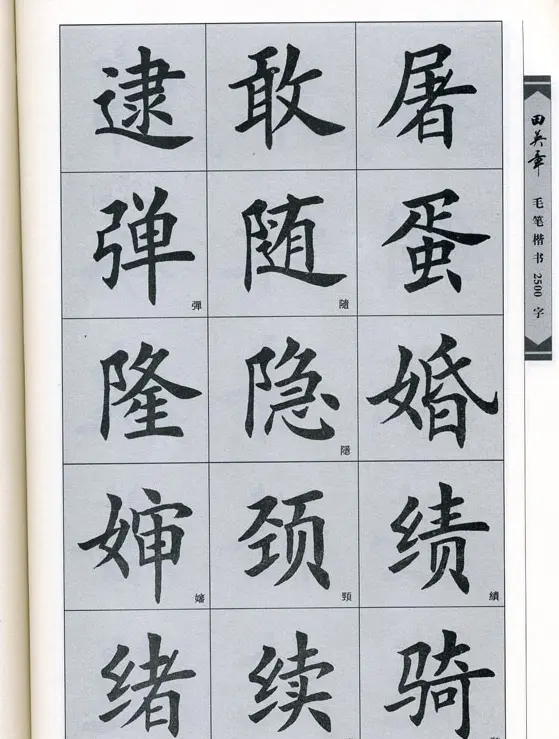 屠
蛋
婚
績
绩
骑
敢
随
隨
隐
隱
颈
頸
续
逮
弹
彈
隆
婶
嬸
绪
田英章
毛笔楷书2500字